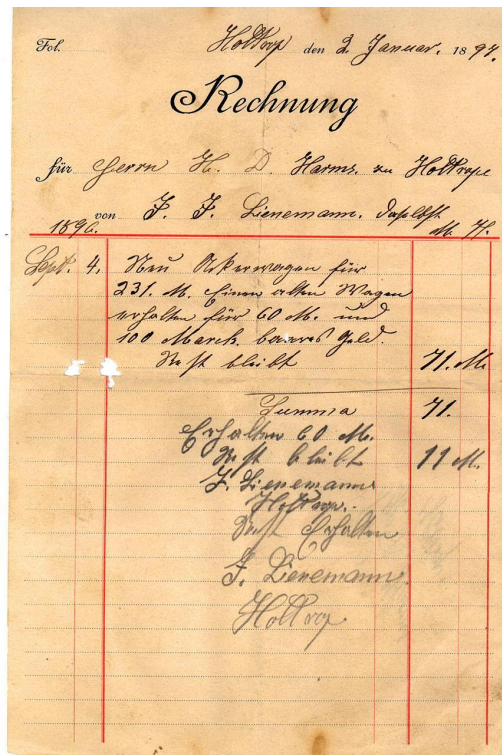 Fol. Holtrop den 2. Januar. 1897.
Rechnung
für Herrn H. D. Harms. zu Holtrope
von J. F. Lienemann. daselbst.
1896. M. Pf.
Sept. 4. Neu Ackerwagen für
231. M. Einen alten Wagen
erhalten für 60 M. und
100 Marck. baares Geld.
Rest bleibt 71. M.
Summa 71.
Erhalten 60 M.
Rest bleibt 11 M.
J. Lienemann
Holtrop.
Rest Erhalten
J. Lienemann
Holtrop